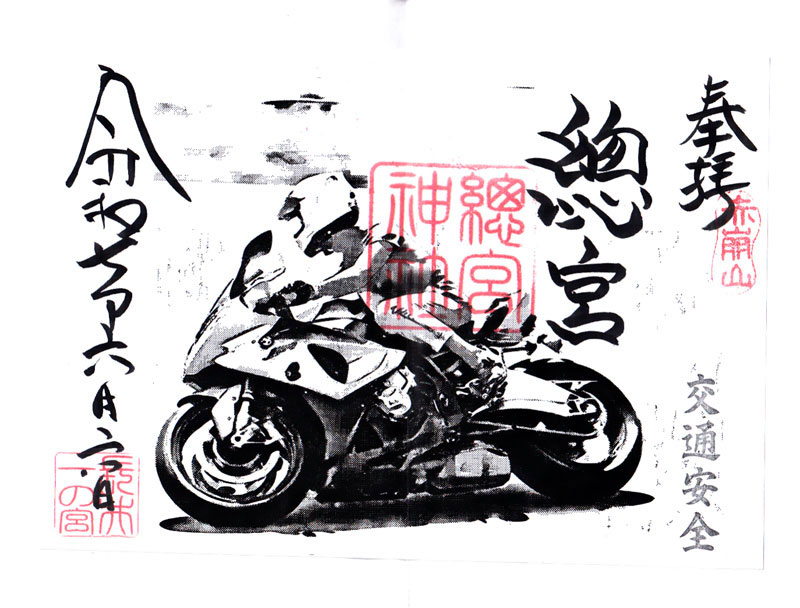 奉拝
赤崩山
交通安全
總宮
總宮
神社
令和七年六月六日
長井
一の宮